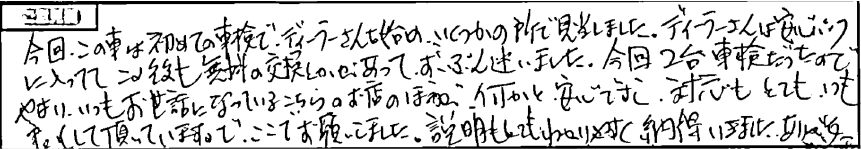 今回、この車は初めての車検で、ディーラーさんを始め、いくつかの所で見積しました。ディーラーさんは安心パック
に入ってて この後も無料の交換とかあって、ずいぶん迷いました。今回2台車検だったので
やはり、いつもお世話になっているこちらのお店のほうが、何かと安心ですし、対応もとてもいつも
して頂いていますので、ここでお願いしました。説明もとてもわかりやすく納得いきました。